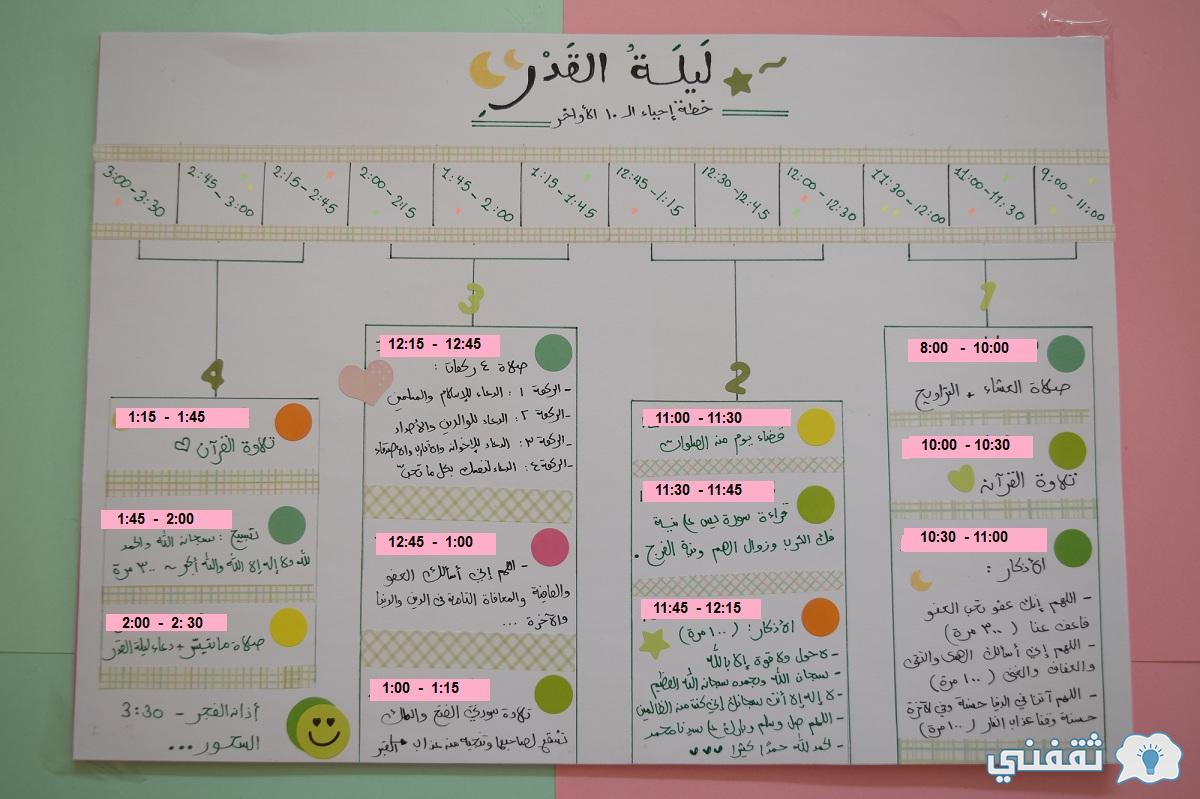 لَيلَةُ القَدْرِ
خطة إحياء الـ ١٠ الأواخر
9:00 - 11:00
11:00 - 11:30
11:30 - 12:00
12:00 - 12:30
12:30 - 12:45
12:45 - 1:15
1:15 - 1:45
1:45 - 2:00
2:00 - 2:15
2:15 - 2:45
2:45 - 3:00
3:00 - 3:30
1
8:00 - 10:00
صلاة العشاء + التراويح
10:00 - 10:30
تلاوة القرآن
10:30 - 11:00
الأذكار :
- اللهم إنك عفو تحب العفو
فاعف عنا ( ٣٠٠ مرة )
- اللهم إني أسألك الهدى والتقى
والعفاف والغنى ( ١٠٠ مرة )
- اللهم آتنا في الدنيا حسنة وفي الآخرة
حسنة وقنا عذاب النار ( ١٠٠ مرة )
2
11:00 - 11:30
قضاء يوم من الصلوات
11:30 - 11:45
قراءة سورة يس على نية
فك الكرب وزوال الهم ونية الفرج .
11:45 - 12:15
الأذكار: ( ١٠٠ مرة )
- لا حول ولا قوة إلا بالله
- سبحان الله وبحمده سبحان الله العظيم
- لا إله إلا أنت سبحانك إني كنت من الظالمين
- اللهم صل وسلم وبارك على سيدنا محمد
- الحمد لله حمدًا كثيرًا
3
12:15 - 12:45
صلاة ٤ ركعات :
- الركعة ١ : الدعاء للإسلام والمسلمين
- الركعة ٢ : الدعاء للوالدين والأجداد
- الركعة ٣ : الدعاء للإخوان والأقارب والأصدقاء
- الركعة ٤ : الدعاء لنفسك بكل ما تحبّ
12:45 - 1:00
- اللهم إني أسألك العفو
والعافية والمعافاة التامة في الدين والدنيا
والآخرة ...
1:00 - 1:15
تلاوة سورتي الفتح والملك
تشفع لصاحبها وتنجيه من عذاب القبر
4
1:15 - 1:45
تلاوة القرآن
1:45 - 2:00
تسبيح : سبحان الله والحمد
لله ولا إله إلا الله والله أكبر ~ ٣٠٠ مرة
2:00 - 2:30
صلاة ما تيسّر + دعاء ليلة القدر
أذان الفجر - 3:30
السحور ...
ثقفني